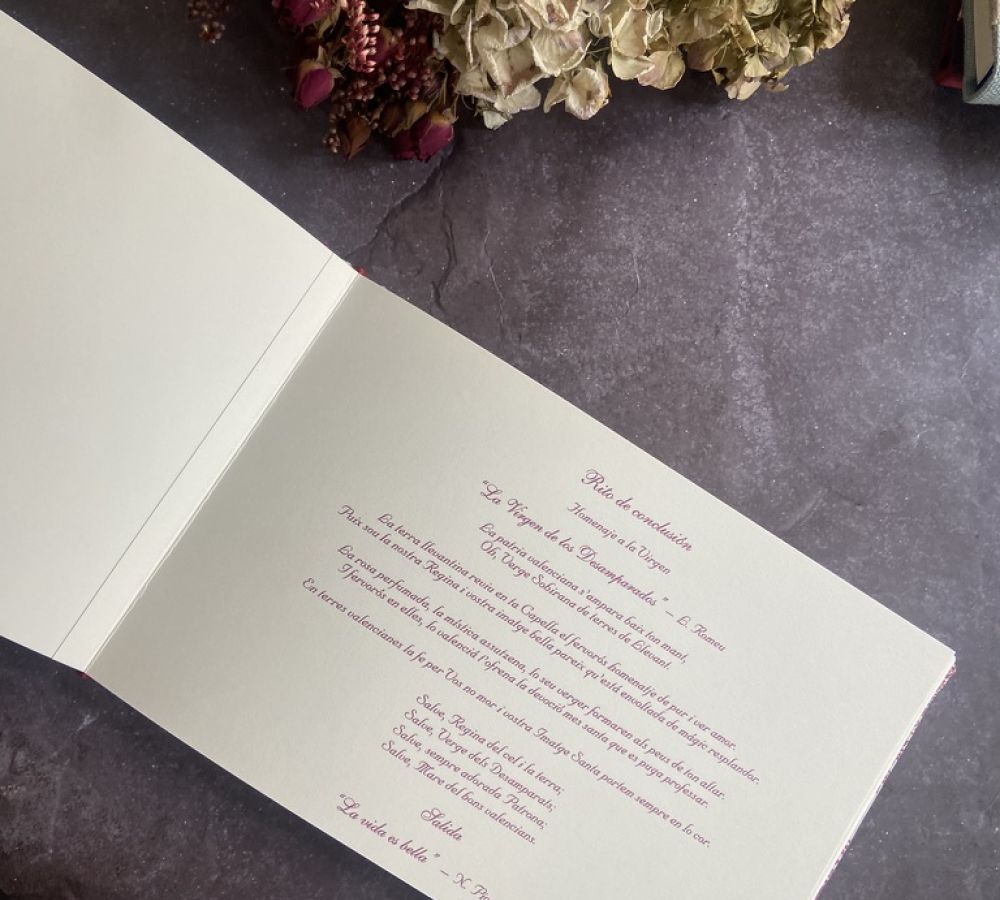 Rito de conclusión
Homenaje a la Virgen
“La Virgen de los Desamparados” – L. Romeu
La patria valenciana s'ampara baix ton mant,
Oh, Verge Sobirana de terres de Llevant.
La terra llevantina reviu en ta Capella el fervorós homenatje de pur i ver amor.
Puix sou la nostra Regina i vostra imatge bella pareix qu'está envoltada de mágic resplandor.
La rosa perfumada, la mística assutzena, lo seu verger formaren als peus de ton altar.
I fervorós en elles, lo valenciá t'ofrena la devoció mes santa que es puga professar.
En terres valencianes la fe per Vos no mor i vostra Imatge Santa portem sempre en lo cor.
Salve, Regina del cel i la terra;
Salve, Verge dels Desamparats;
Salve, sempre adorada Patrona;
Salve, Mare del bons valencians.
Salida
“La vida es bella” – N.